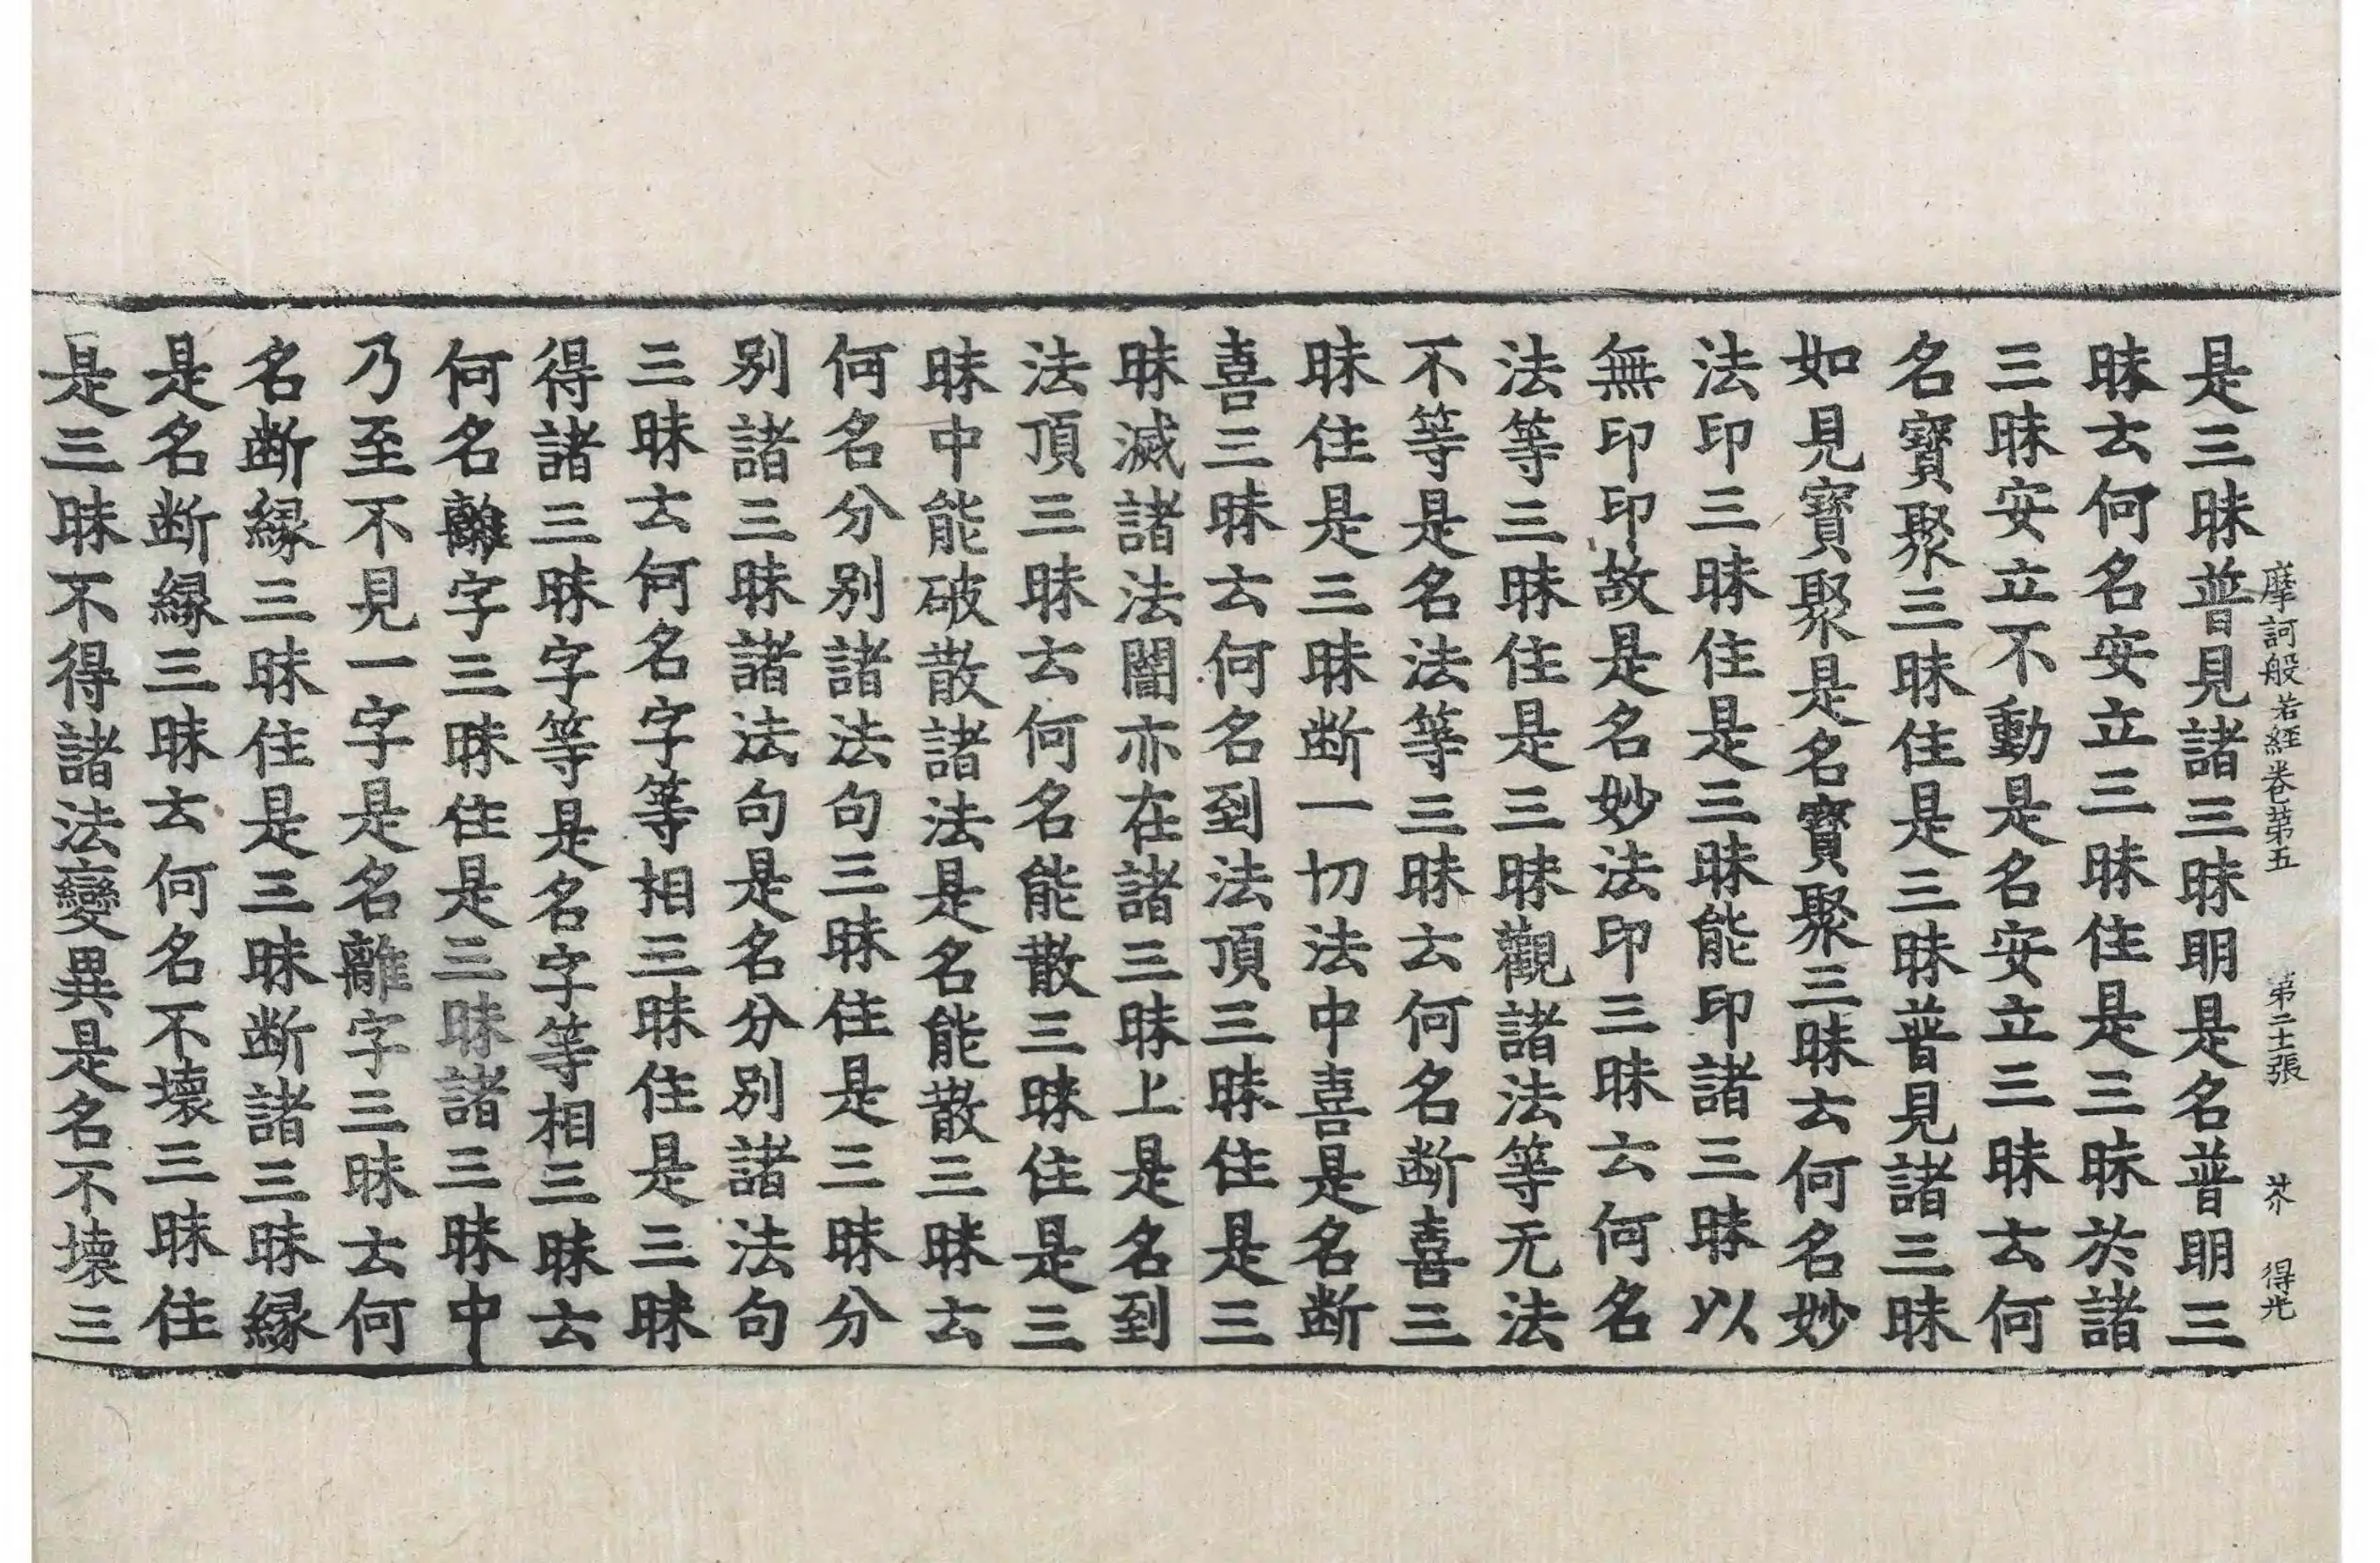 摩訶般若經卷第五　第二十張　芥　得光
是三昧普見諸三昧明是名普明三
昧云何名安立三昧住是三昧於諸
三昧安立不動是名安立三昧云何
名寶聚三昧住是三昧普見諸三昧
如見寶聚是名寶聚三昧云何名妙
法印三昧住是三昧能印諸三昧以
無印印故是名妙法印三昧云何名
法等三昧住是三昧觀諸法等无法
不等是名法等三昧云何名断喜三
昧住是三昧断一切法中喜是名断
喜三昧云何名到法頂三昧住是三
昧滅諸法闇亦在諸三昧上是名到
法頂三昧云何名能散三昧住是三
昧中能破散諸法是名能散三昧云
何名分別諸法句三昧住是三昧分
別諸三昧諸法句是名分別諸法句
三昧云何名字等相三昧住是三昧
得諸三昧字等是名字等相三昧云
何名離字三昧住是三昧諸三昧中
乃至不見一字是名離字三昧云何
名断緣三昧住是三昧断諸三昧緣
是名断緣三昧云何名不壞三昧住
是三昧不得諸法變異是名不壞三